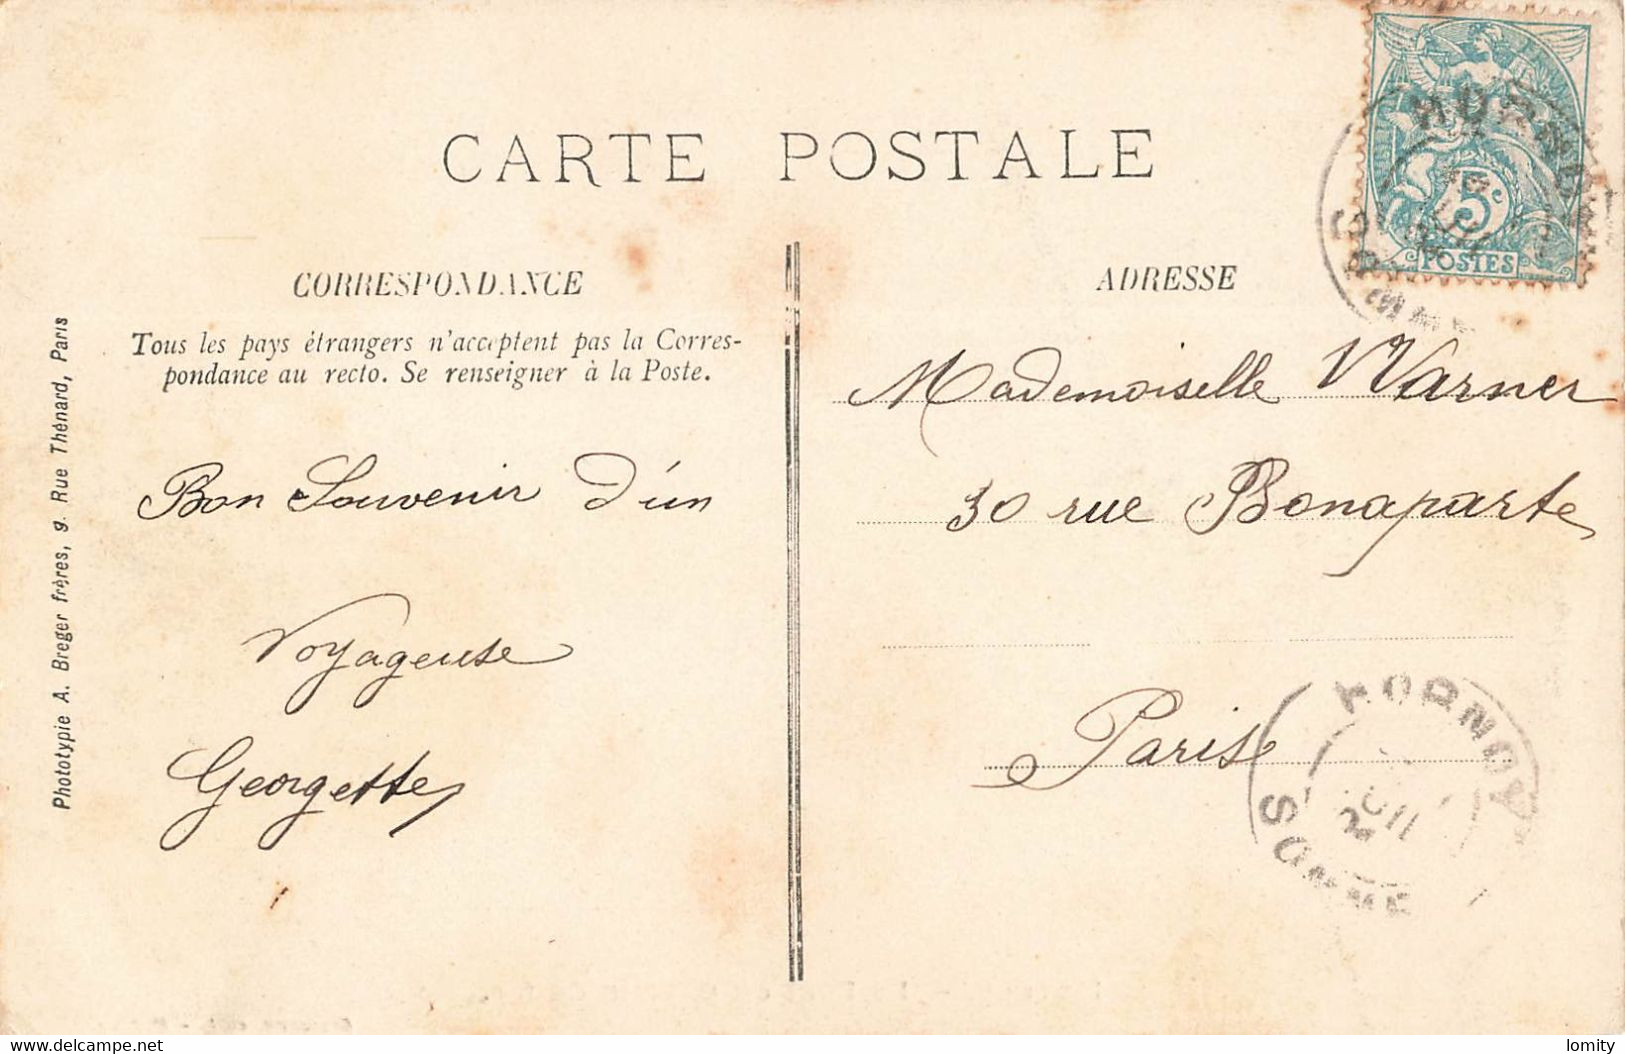 CARTE POSTALE
5c
POSTES
CORRESPONDANCE
Tous les pays étrangers n'acceptent pas la Corres-
pondance au recto. Se renseigner à la Poste.
Bon Souvenir d'un
Voyageuse
Georgette
ADRESSE
Mademoiselle Warner
30 rue Bonaparte
Paris
HORNOY
SOMME
Phototypie A. Breger frères, 9. Rue Thénard, Paris
www.delcampe.net
lomity